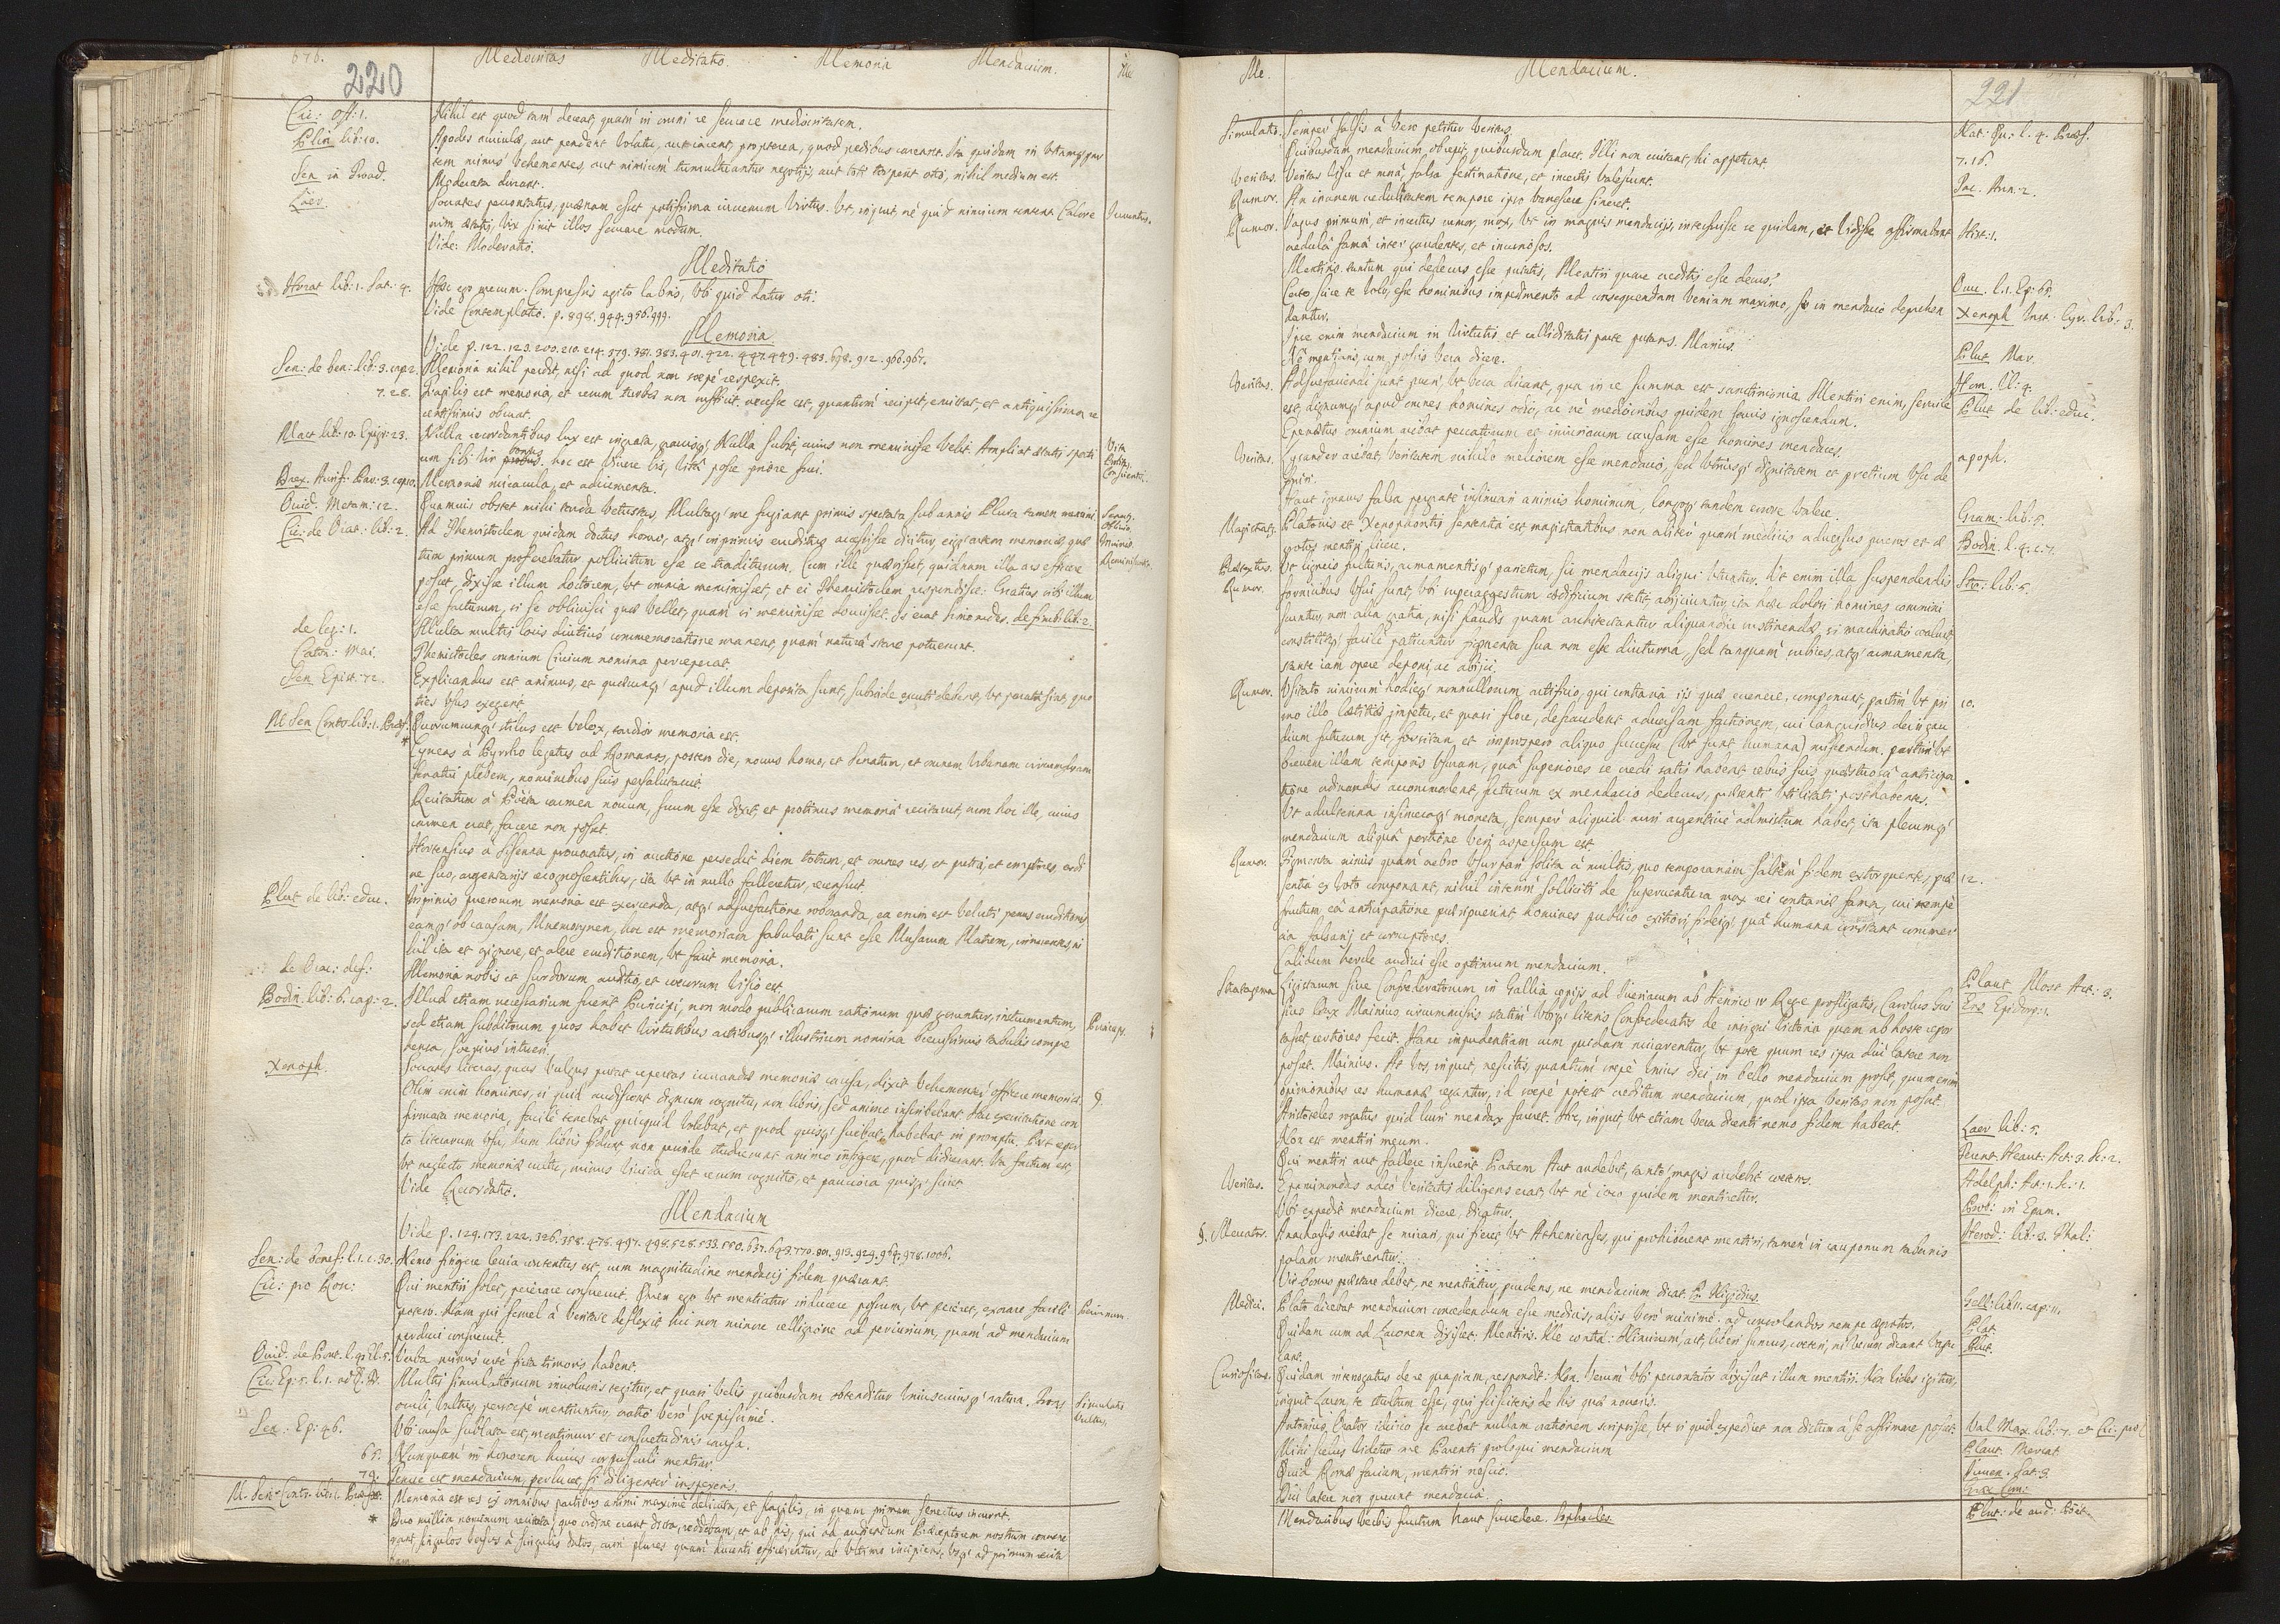 676.
220
Mediocritas Meditatio. Memoria Mendacium. Me
Cic: Off: 1. Nihil est quod tam deceat, quam in omni re servare mediocritatem.
Plin lib: 10. Apodes aviculæ, aut pendent volatu, aut iacent, propterea, quod pedibus careant. Ita quidam in utramque par
tem nimis vehementes, aut nimium tumultuantur negotiis, aut toti torpent otio, nihil medium est.
Sen in Troad. Moderata durant.
Laer. Socrates percontatus, quænam esset potissima iuvenum virtus. Ut, inquit, ne quid nimium tentent. Calore Iuventus.
enim ætatis, vix sinit illos servare modum.
Vide: Moderatio.
Meditatio
Horat lib: 1. Sat: 4. Hæc ego mecum. Compressis agito labris, Ubi quid datur oti.
Vide Contemplatio. p. 898. 944. 956. 999.
Memoria
Vide p. 122. 123. 200. 210. 214. 379. 381. 383. 401. 422. 447. 449. 483. 698. 912. 960. 967.
Sen: de ben: lib: 3. cap 2. Memoria nihil perdit, nisi ad quod non sæpe respexit.
7. 28. Fragilis est memoria, et rerum turbæ non sufficit. necesse est, quantum recipit, emittat, et antiquissima re
centissimis obruat.
Mart lib: 10. Epigr: 23. Nulla recordantibus lux est ingrata, gravisque Nulla subit, cuius non meminisse velit. Ampliat ætatis spatii
um sibi vir bonus. hoc est Vivere bis, vita posse priore frui.
Memoriæ miracula, et adiumenta.
Ouid. Metam: 12. Quamuis obstet mihi tarda vetustas, Multaque me fugiant primis spectata sub annis Plura tamen memini
Cic: de Orat: lib: 2. Ad Themistoclem quidam doctus homo, atque inprimis eruditus accessisse dicitur, eique artem memoriæ, quæ
tum primum proferebatur pollicitum esse se traditurum. Cum ille quæsisset, quidnam illa ars efficere
posset, dixisse illum doctorem, ut omnia meminisset, et ei Themistoclem respondisse: Gratius sibi illum
esse facturum, si se oblivisci quæ vellet, quam si meminisse docuisset. Is erat Simonides. de finib lib: 2.
de leg: 1. Multa multis locis diutius commemoratione manent, quam natura stare potuerunt.
Caton: Mai. Themistocles omnium Civium nomina perceperat.
Sen Epist: 72. Explicandus est animus, et quæcunque apud illum deposita sunt, subinde excuti debent, ut parata sint, quo
ties usus exegerit.
M Sen Contr. lib: 1. Præf: Quorumcunque stilus est velox, tardior memoria est.
* Cyneas à Pyrrho legatus ad Romanos, postero die, novus homo, et Senatum, et omnem Urbanam circumfusam
senatui plebem, nominibus suis persalutavit.
Recitatum à Poeta carmen novum, suum esse dixit, et protinus memoria recitavit, cum hoc ille, cuius
carmen erat, facere non posset.
Hortensius à Sisenna provocatus, in auctione persedit diem totum, et omnes res, et pretia, et emptores, ordi
ne suo, argentariis recognoscentibus, ita ut in nullo falleretur, recensuit.
Plut de lib: educ. Inprimis puerorum memoria est exercenda, atque adsuefactione roboranda, ea enim est veluti penus eruditionis,
eamque ob causam, Mnemosynen, hoc est memoriam fabulati sunt esse Musarum Matrem, innuentes, ni
hil ita et gignere, et alere eruditionem, ut facit memoria.
de Orac: def: Memoria nobis et surdorum auditio, et cæcorum visio est.
Bodin. lib: 6. cap: 2. Illud etiam necessarium fuerit Principi, non modo publicarum rationum quæ geruntur, instrumentum, Princeps.
sed etiam subditorum quos habet virtutibus artibusque illustrium nomina brevissimis tabulis compre
hensa, sæpius intueri.
Xenoph. Socrates literas, quas vulgus putat repertas iuvandæ memoriæ causa, dixit vehementer officere memoriæ. §
Olim enim homines, si quid audissent dignum cognitu, non libris, sed animo inscribebant. Hac exercitatione con
firmata memoria, facile tenebat quicquid volebat, et quod quisque sciebat, habebat in promptu. Post reper
to literarum usu, dum libris fidunt, non perinde studuerunt animo infigere, quod didicerant. Ita factum est,
ut neglecto memoriæ cultu, minus vivida esset rerum cognitio, et pauciora quisque sciret
Vide Recordatio.
Mendacium
Vide p. 129. 173. 222. 326. 358. 478. 497. 498. 528. 533. 550. 637. 643. 770. 801. 913. 929. 964. 978. 1006.
Sen: de benef: l. 1. c. 30. Nemo fingere levia contentus est, cum magnitudine mendacii fidem quærant.
Cic: pro Ros: Qui mentiri solet, peierare consuevit. Quem ego ut mentiatur inducere possum, ut peieret, exorare facile Periurium
potero. Nam qui semel à veritate deflexit, hic non minore relligione ad periurium, quam ad mendacium
perduci consuevit.
Ouid. de Pont. Verba minus certe ficta timoris habent.
Cic: Ep: Multis simulationum involucris tegitur, et quasi velis quibusdam obtenditur uniuscuiusque natura. Frons Simulatio
oculi, vultus, persæpe mentiuntur, oratio vero sæpissime. Vultus.
Sen: Ep: 46. Ubi causa sublata est, mentimur et consuetudinis causa.
65. Nunquam in honorem huius corpusculi mentiar.
79. Tenue est mendacium, perlucet, si diligenter inspexeris.
M. Sen: Contr: lib: 1. Præf: Memoria est res ex omnibus partibus animi maxime delicata, et fragilis, in quam primam senectus incurrit.
* Duo millia nominum recitata, quo ordine erant dicta, reddebam, et ab his, qui ad audiendum Præceptorem nostrum convene
rant, singulos versus à singulis datos, cum plures quam ducenti efficerentur, ab ultimo incipiens, usque ad primum recita
bam.
Me. Mendacium. 221
Simulatio. Semper falsis à vero petitur veritas. Nat: Qu: l. 4. Præf.
Quibusdam mendacium obrepit, quibusdam placet. Illi non evitant, hi appetunt. 7. 16.
Veritas. Veritas visu et mora, falsa festinatione, et incertis valescunt. Tac. Ann: 2.
Rumor. An inanem credulitatem tempore ipso vanescere sineret.
Rumor. Vagus primum, et incertus rumor, mox, ut in magnis mendaciis, interfuisse se quidam, et vidisse affirmabant Hist: 1.
credula fama inter gaudentes, et incuriosos.
Mentiris tantum qui dedecus esse putatis, Mentiri quare creditis esse decus? Ouu. l. 1. Ep: 65.
Certo scire te volo, esse hominibus impedimento ad consequendam veniam maximo, si in mendacio deprehen Xenoph Inst. Cyr. lib: 3.
dantur.
Ipse enim mendacium in virtutis et calliditatis parte putans. Marius. Plut Mar.
Ne mentiaris, cum possis vera dicere. Hom. Il: 4.
Veritas. Adsuefaciendi sunt pueri, ut vera dicant, qua in re summa est sanctimonia Mentiri enim, servile Plut de lib: educ.
est, dignumque apud omnes homines odio, ac ne mediocribus quidem servis ignoscendum.
Epænetus omnium aiebat peccatorum et iniuriarum causam esse homines mendaces. apoph.
Veritas. Lysander aiebat, veritatem nihilo meliorem esse mendacio, sed utriusque dignitatem et pretium usu de
finiri.
Haut ignarus falsa pergrate insinuari animis hominum, longoque tandem errore valere. Gram: lib: 5.
Magistrat. Platonis et Xenophontis sententia est magistratibus non aliter quam medicis adversus pueros et æ Bodin. l. 4. c. 7.
grotos mentiri licere.
Rumor. Ut ligneis fulturis, armamentisque parietum, sic mendaciis aliqui utuntur. Ut enim illa suspendendis Stra: lib: 5.
fornicibus usui sunt, ubi superaggestum ædificium stetit, abiiciuntur, ita hæc dolosi homines commini
scuntur, non alia gratia, nisi fraudis quam architectantur aliquandiu sustinendæ, si machinatio coaluit
constititque, facile patiuntur figmenta sua non esse diuturna, sed tanquam rubices, atque armamenta,
stante iam opere deponi, ac abiici.
Rumor. Usitato nimirum hodieque nonnullorum artificio, qui contraria iis quæ evenere, componunt, partim ut pri 10.
mo illo lætitiæ impetu, et quasi flore, defraudent adversam factionem, cui languidius dein gau
dium futurum sit, forsitan et improspero aliquo successu (ut sunt humana) miscendum. partim ut
brevem illam temporis usuram, qua superiores se credi satis habent, rebus suis quæstuosa anticipa
tione adnandis accommodent, futurum ex mendacio dedecus, præsenti utilitati posthabentes.
Ut adulterina insinceraque moneta, semper aliquid auri argentive admistum habet, ita plerumque
mendacium aliqua portione veri aspersum est.
Rumor. Figmenta nimis quam crebro usurpari solita à multis, quo temporariam saltem fidem extorquent, præ 12.
sentia ex voto componant, nihil interim solliciti de superventura mox rei contraria fama, cui nempe
fructum, ea anticipatione præripuerint homines publico exitiosi, fideique, qua humana constant commer
cia falsarii et corruptores.
Calidum hercle audivi esse optimum mendacium. Plaut Most Act: 3.
Stratagema Ligistarum sive Confœderatorum in Gallia copiis ad Iueriacum ab Henrico IV Rege profligatis, Carolus Gui Ens Epidorp: 1.
sius Dux Mainius, circummissis statim ubique literis Confœderatis de insigni victoria quam ab hoste repor
tasset certiores fecit. Hanc impudentiam cum quidam mirarentur, ut pote quum res ipsa diu latere non
posset. Mainius. At vos, inquit, nescitis, quantum sæpe unius diei in bello mendacium prosit, quum enim
opinionibus res humanæ regantur, id sæpe potest creditum mendacium, quod ipsa veritas non posset.
Aristoteles rogatus quid lucri mendax faceret. Hoc, inquit, ut etiam vera dicenti nemo fidem habeat. Laer lib: 5.
Non est mentiri meum. Terent Heaut: Act: 3. Sc: 2.
Qui mentiri aut fallere insuerit Patrem Aut audebit, tanto magis audebit cæteros. Adelph: Act: 1. Sc: 1.
Veritas. Epaminondas adeo veritatis diligens erat, ut ne ioco quidem mentiretur. Prob: in Epam.
Ubi expedit mendacium dicere, dicatur. Herod: lib: 3. Thal:
§. Mercator. Anacharsis aiebat se mirari, qui fieret ut Athenienses, qui prohiberent mentiri, tamen in cauponum tabernis
palam mentirentur.
Vir bonus præstare debet, ne mentiatur, prudens, ne mendacium dicat P. Nigidius. Gell: lib: 11. cap: 11.
Medici. Plato dicebat mendacium concedendum esse medicis, aliis vero minime. ad consolandos nempe ægrotos. Plat.
Quidam cum ad Laconem dixisset: Mentiris. Ille contra: Nimirum, aut, liberi sumus, cæteri, ni verum dicant vapu Plut.
lant.
Curiositas. Quidam interrogatus de re quapiam, respondit: Non. Verum ubi percontator dixisset illum mentiri: Non vides igitur,
inquit Lacon, te stultum esse, qui sciscitaris de his quæ noveris.
Antonius Orator idcirco se aiebat nullam orationem scripsisse, ut si quid expediret non dictum à se affirmare posset: Val Max. lib: 7. et Cic: pro C
Mihi secus videtur me Parenti proloqui mendacium Plaut Mercat
Quid Romæ faciam, mentiri nescio. Iuuen. Sat: 3.
Diu latere non queunt mendacia.
Mendacibus verbis fructum haut succedere. Sophocles Plut: de aud: Poet.